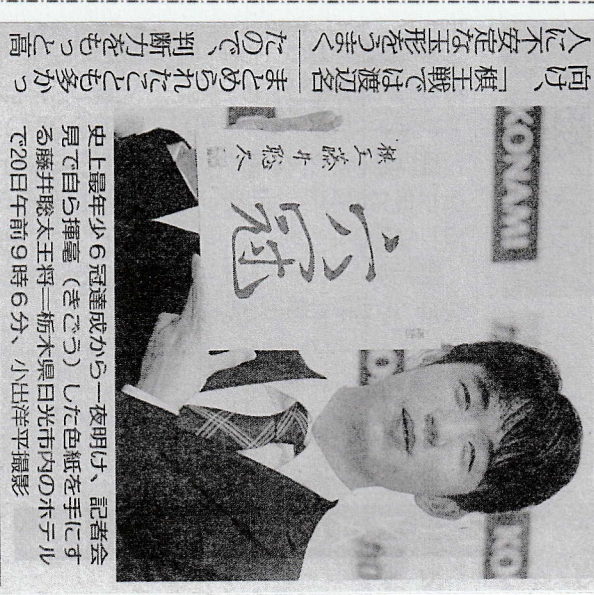 向け、「棋王戦では渡辺名
人に不安定な玉形をうまく
まとめられたことも多かっ
たので、判断力をもっと高
KONAMI
六冠
棋王 藤井聡太
KO
史上最年少6冠達成から一夜明け、記者会
見で自ら揮毫(きごう)した色紙を手にす
る藤井聡太王将=栃木県日光市内のホテル
で20日午前9時6分、小出洋平撮影